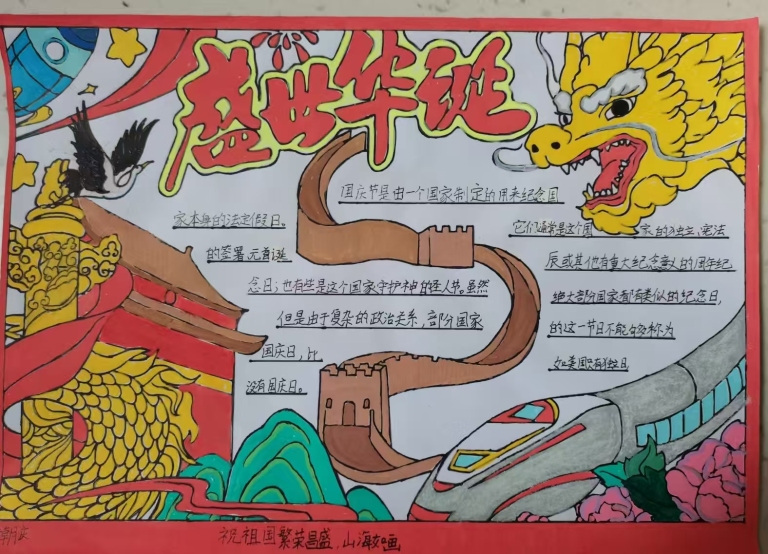 盛世华诞
国庆节是由一个国家制定的用来纪念国
家本身的法定假日。
它们通常是这个国
家的独立、宪法
的签署、元首诞
辰或其他有重大纪念意义的周年纪
念日；也有些是这个国家守护神的圣人节。虽然
绝大部分国家都有类似的纪念日，
但是由于复杂的政治关系，部分国家
的这一节日不能够称为
国庆日，比
如美国只有独立日
没有国庆日。
祝祖国繁荣昌盛，山海